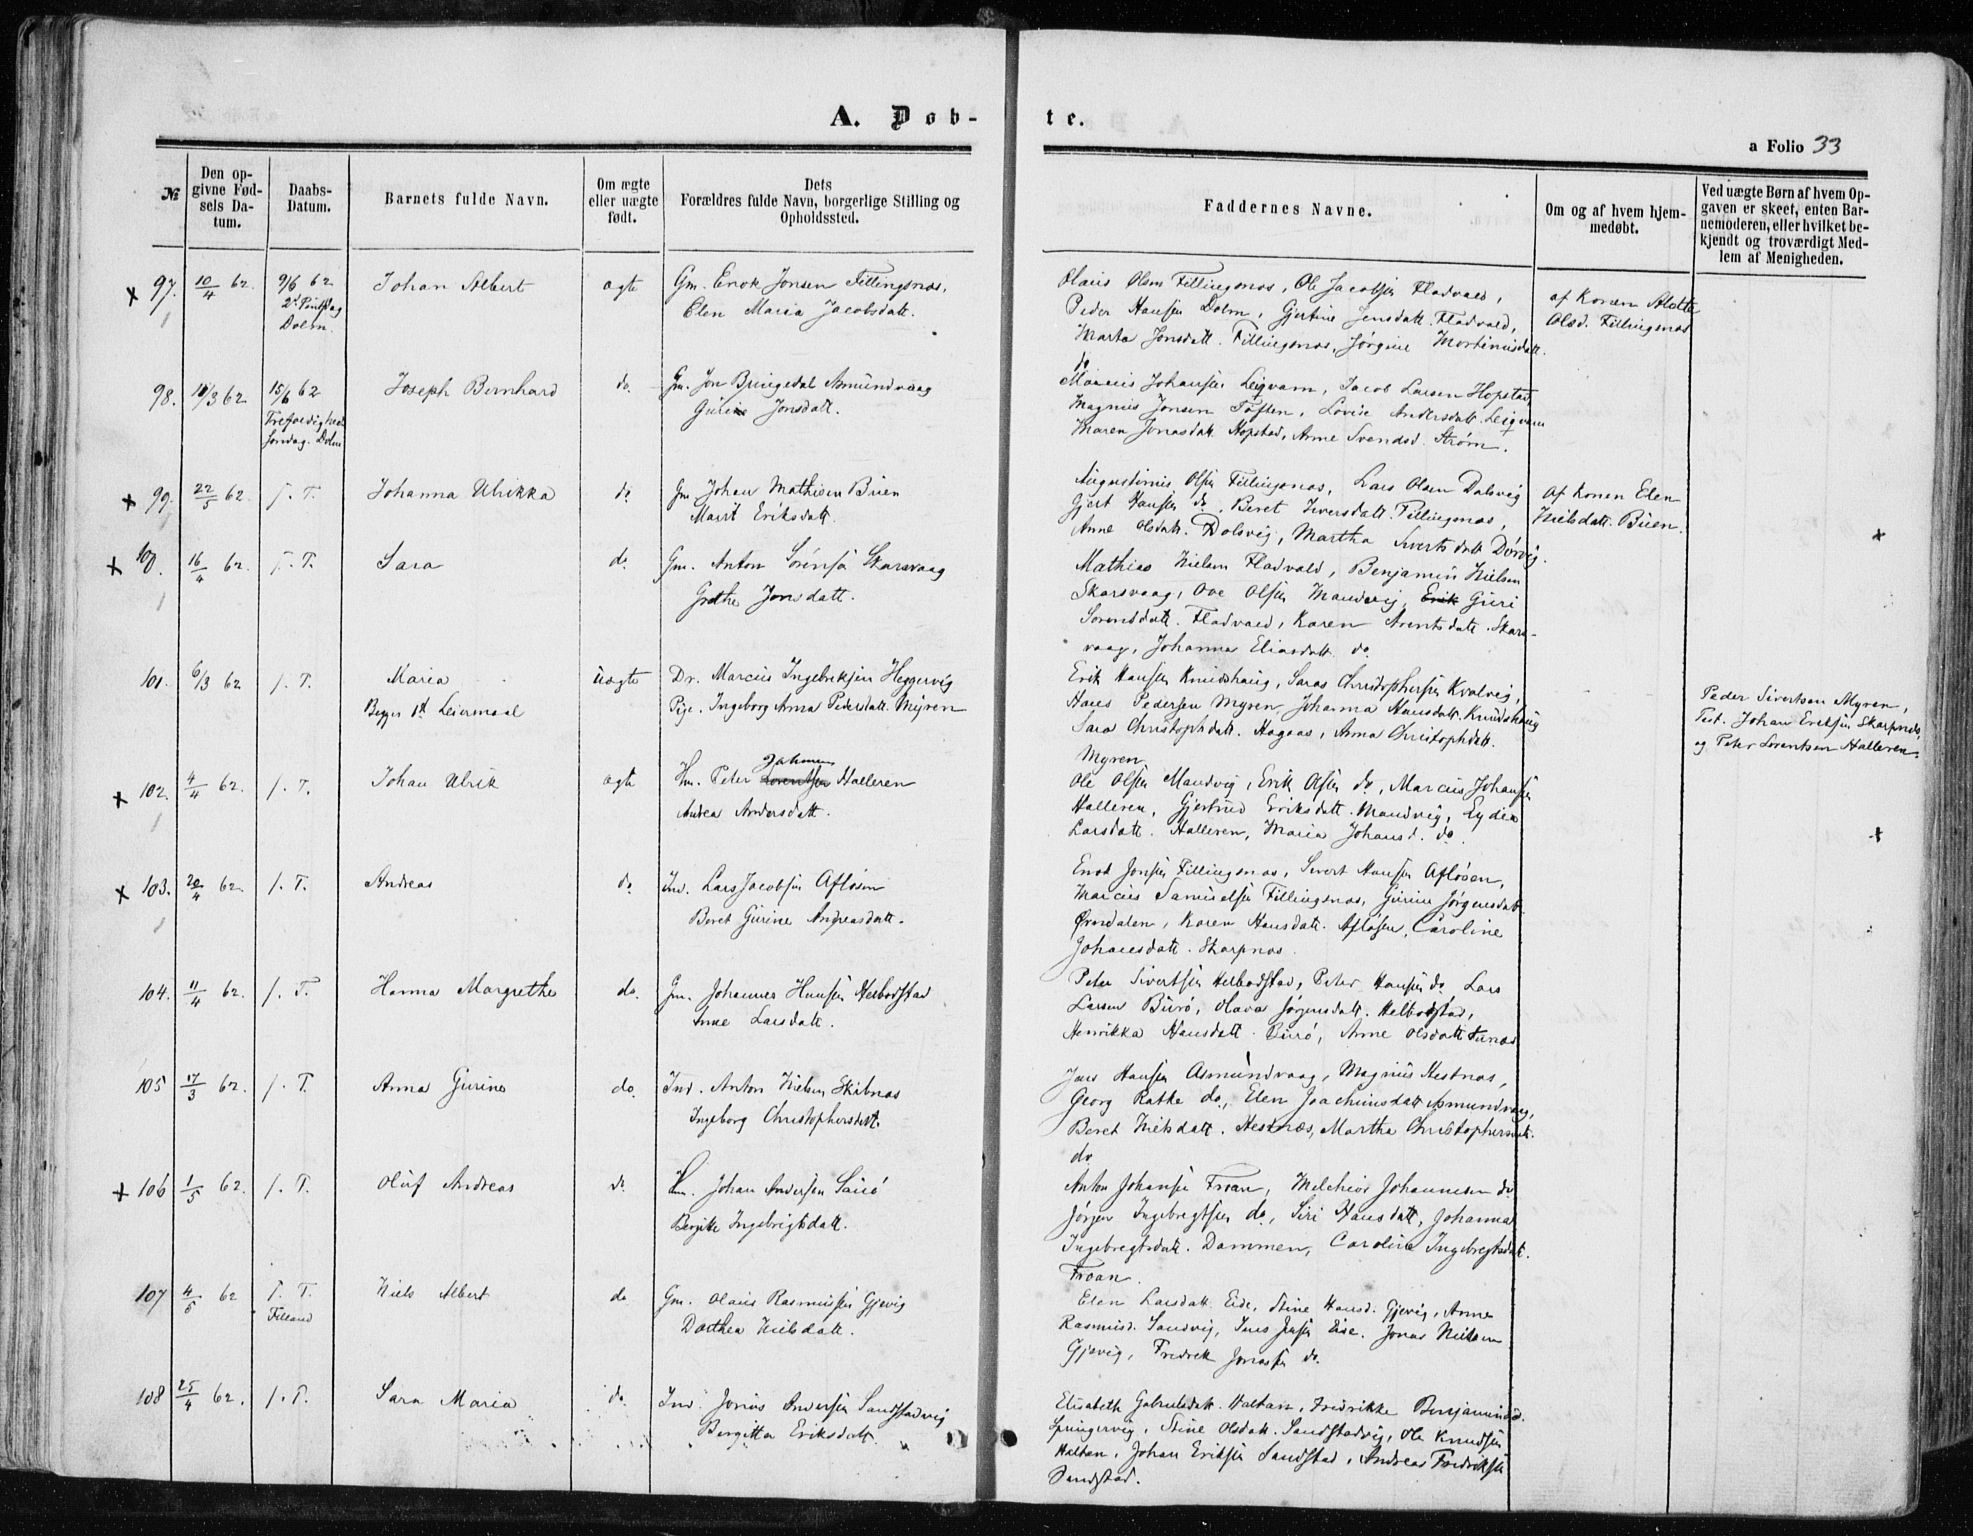 A. Døb-
te.
a Folio 33
№
Den op-
givne Fød-
sels Da-
tum.
Daabs-
Datum.
Barnets fulde Navn.
Om ægte
eller uægte
født.
Dets
Forældres fulde Navn, borgerlige Stilling og
Opholdssted.
Faddernes Navne.
Om og af hvem hjem-
medøbt.
Ved uægte Børn af hvem Op-
gaven er skeet, enten Bar-
nemoderen, eller hvilket be-
kjendt og troværdigt Med-
lem af Menigheden.
x 97. 10/4 62. 9/6 62 Johan Albert ægte Gm. Enok Jonsen Fillingsnæs,
2d Pintsdag
Dolm.
Elen Maria Jacobsdatt.
Olaus Olsen Fillingsnæs, Ole Jacobsen Fladvald,
Peder Hansen Dolm, Gjertine Jensdatt. Fladvald,
Marta Jonsdatt. Fillingsnæs, Jørgine Mortinusdatt.
do
af Konen
Olsd. Fillingsnæs
98. 62 15/6 62 Joseph Bernhard do. Gm. Jon Bringedal Asmundvaag
Trefoldigheds
Søndag. Dolm
Gurine Jonsdatt.
Marcus Johansen Leigvam, Jacob Larsen Hopstad
Magnus Jonsen Toften, Lovise Andersdatt. Leigvam
Maren Jonasdatt. Hopstad, Anne Svendsd. Strøm.
x 99. 22/5 62. f. T. Johanna Ulrikka do Gm. Johan Mathisen Buen
Marit Eriksdatt.
Augustinus Olsen Fillingsnæs, Lars Olsen Dalsvig
Gjert Hansen do, Beret Iversdatt. Fillingsnæs,
Anne Olsdatt. Dolsvig, Martha Sivertsdatt. Dørvig.
Af Konen Elen
Nielsdatt. Buen.
x 100. 16/4 62. f. T. Sara do. Gm. Anton Sørensen Skarsvaag
Grethe Jonsdatt.
Mathias Nielsen Fladvald, Benjamin Nielsen
Skarsvaag, Ove Olsen Mandvig, Erik Guri
Sørensdatt. Fladvald, Karen Arentsdatt. Skars-
vaag, Johanna Eliasdatt. do.
101. 6/3 62 f. T. Maria uægte Dr. Marcus Ingebriktsen Heggervig
Begges 1st Leiermaal
Pige. Ingeborg Anna Pedersdatt. Myren
Erik Hansen Knudshaug, Saras Christophersen Kvalvig,
Hans Pedersen Myren, Johanna Hansdatt. Knudshaug
Sara Christophdatt. Hagaas, Anna Christophdatt.
Myren
Peder Sivertsen Myren,
Test. Johan Eriksen Skarpnæs
og Peter Lorentsen Halleren.
x 102. 4/4 62. f. T. Johan Ulrik ægte Hm. Peter Lorentsen Halleren
Andrea Andersdatt.
Ole Olsen Mandvig, Erik Olsen do, Marcus Johansen
Halleren, Gjertrud Eriksdatt. Mandvig,
Larsdatt. Halleren, Maria Johansd. do.
x 103. 20/4 62. f. T. Andreas do Ind. Lars Jacobsen Afløsen
Beret Gurine Andreasdatt.
Enok Jonsen Fillingsnæs, Sivert Hansen Afløsen,
Marcus Samuelsen Fillingsnæs, Gurine Jørgensdatt
Ørndalen, Karen Hansdatt. Afløsen, Caroline
Johansdatt. Skarpnæs.
104. 11/4 62. f. T. Hanna Margrethe do. Gm. Johannes Hansen Helbodstad
Anne Larsdatt.
Peter Sivertsen Helbodstad, Peter Hansen do Lars
Larsen Burø, Olava Jørgensdatt. Helbodstad,
Henrikka Hansdatt. Burø, Anne Olsdatt
105 17/3 62. f. T. Anna Gurine do. Ind. Anton Nielsen Skibnæs
Ingeborg Christophersdatt.
Hansen Asmundvaag, Magnus Hestnæs,
Georg Ratke do, Elen Joachimsdatt. Asmundvaag,
Beret Nielsdatt. Hestnæs, Martha Christophersdatt.
do
x 106 1/5 62. f. T. Oluf Andreas do. Johan Andersen Saurø
Bergitte Ingebrigtsdatt.
Anton Johansen Froan, Melchior Johannesen do
Jørgen Ingebregtsen do, Siri Hansdatt, Johanna
Ingebregtsdatt. Dammen, Caroline Ingebregtsdatt.
Froan.
107 62 f. T. Niels Albert do Gm. Olaus Rasmussen Gjevig
Filland
Dorthea Nielsdatt.
Elen Larsdatt. Eide, Stine Hansd. Gjevig, Anne
Rasmusd. Sandvig, Jens Jensen Eide. Jonas Nielsen
Gjevig, Fredrik Jonassen do.
108 25/4 62. f. T. Sara Maria do Ind. Jonas Andersen Sandstadvig
Bergitta Eriksdatt.
Elisabeth Gabrielsdatt. Haltan, Fredrikke Benjaminsd.
Springervig, Stine Olsdatt. Sandstadvig, Ole Knudsen
Haltan, Johan Eriksen Sandstad, Andreas Fredriksen
Sandstad.